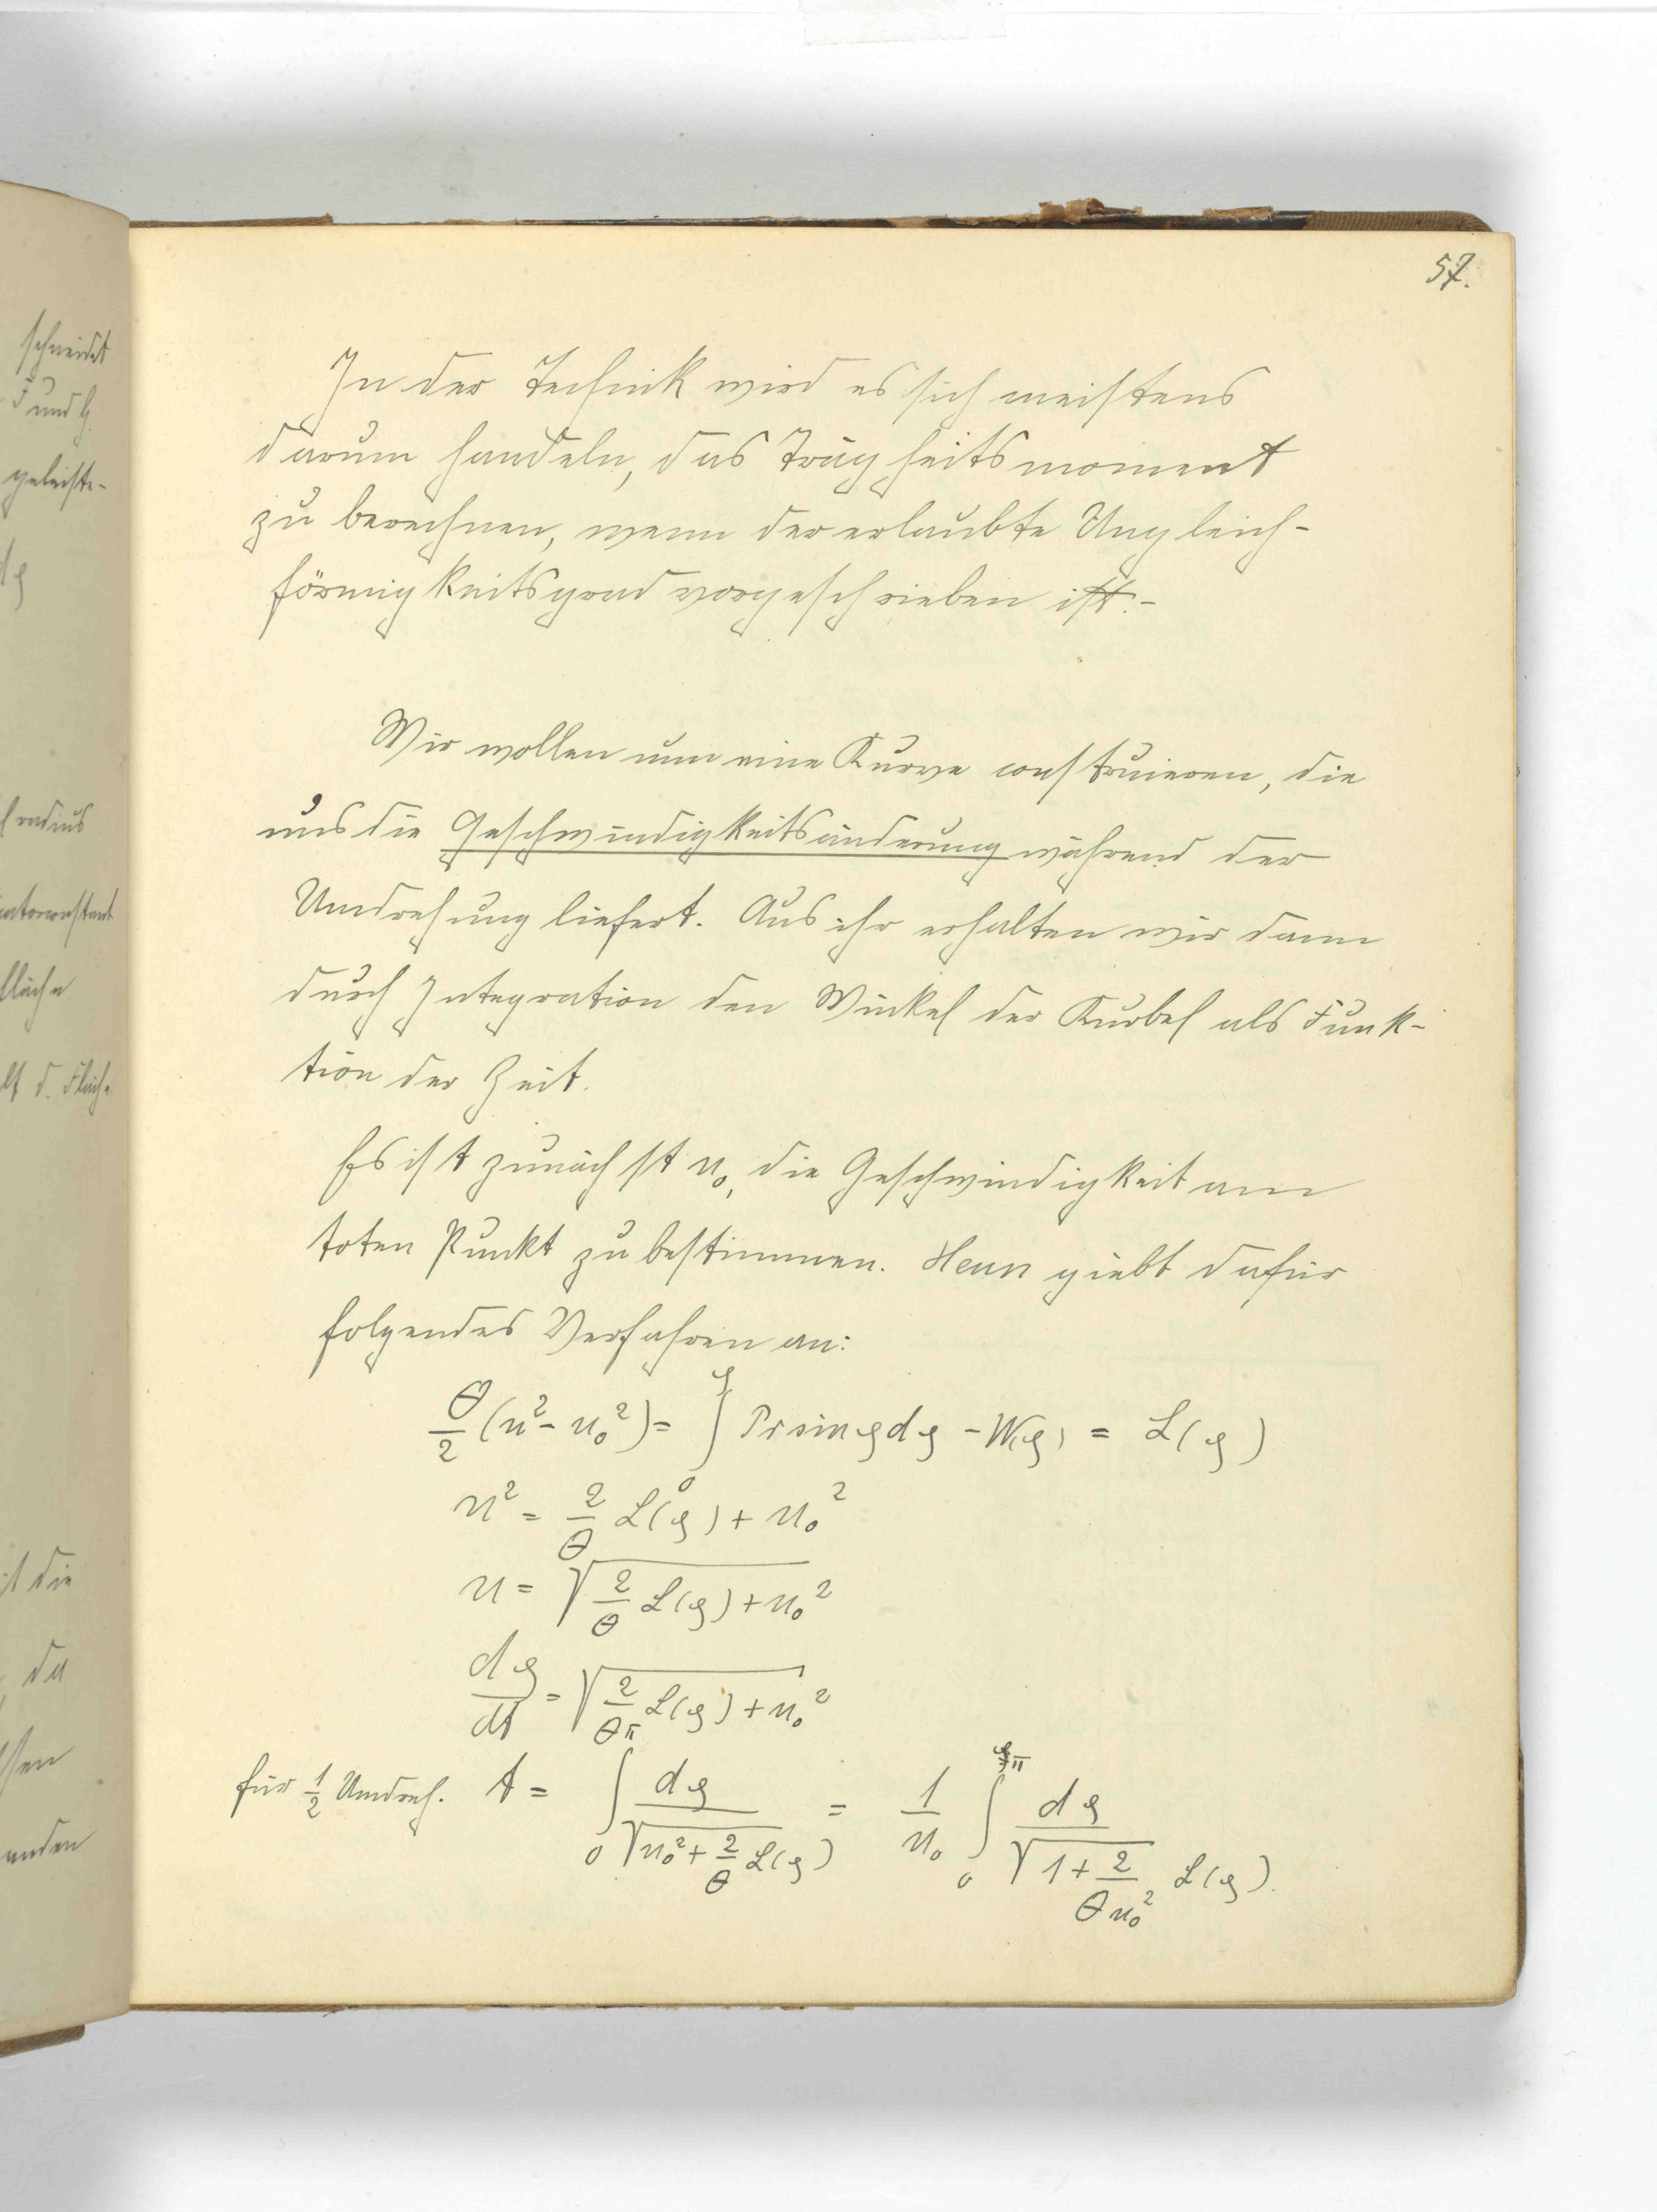 57.
In der Technik wird es sich meistens
darum handeln, das Trägheitsmoment
zu berechnen, wenn der erlaubte Ungleich-
förmigkeitsgrad vorgeschrieben ist.-
Wir wollen nun eine Kurve construieren, die
uns die Geschwindigkeitsänderung während der
Umdrehung liefert. Aus ihr erhalten wir dann
durch Integration den Winkel der Kurbel als Funk-
tion der Zeit.
Es ist zunächst u₀, die Geschwindigkeit am
toten Punkt zu bestimmen. Heun giebt dafür
folgendes Verfahren an:
θ/2 (u² - u₀²) = ∫₀^φ Pr sin φ dφ - W(φ) = L(φ)
u² = 2/θ L(φ) + u₀²
u = √(2/θ L(φ) + u₀²)
dφ/dt = √(2/θ L(φ) + u₀²)
für 1/2 Umdreh. t = ∫₀^π dφ/√(u₀² + 2/θ L(φ)) = 1/u₀ ∫₀^π dφ/√(1 + 2/(θu₀²) L(φ)).
schneidet
F und G.
geleiste-
dφ
radius
constant
fläche
d. Fläche
die
da
anden